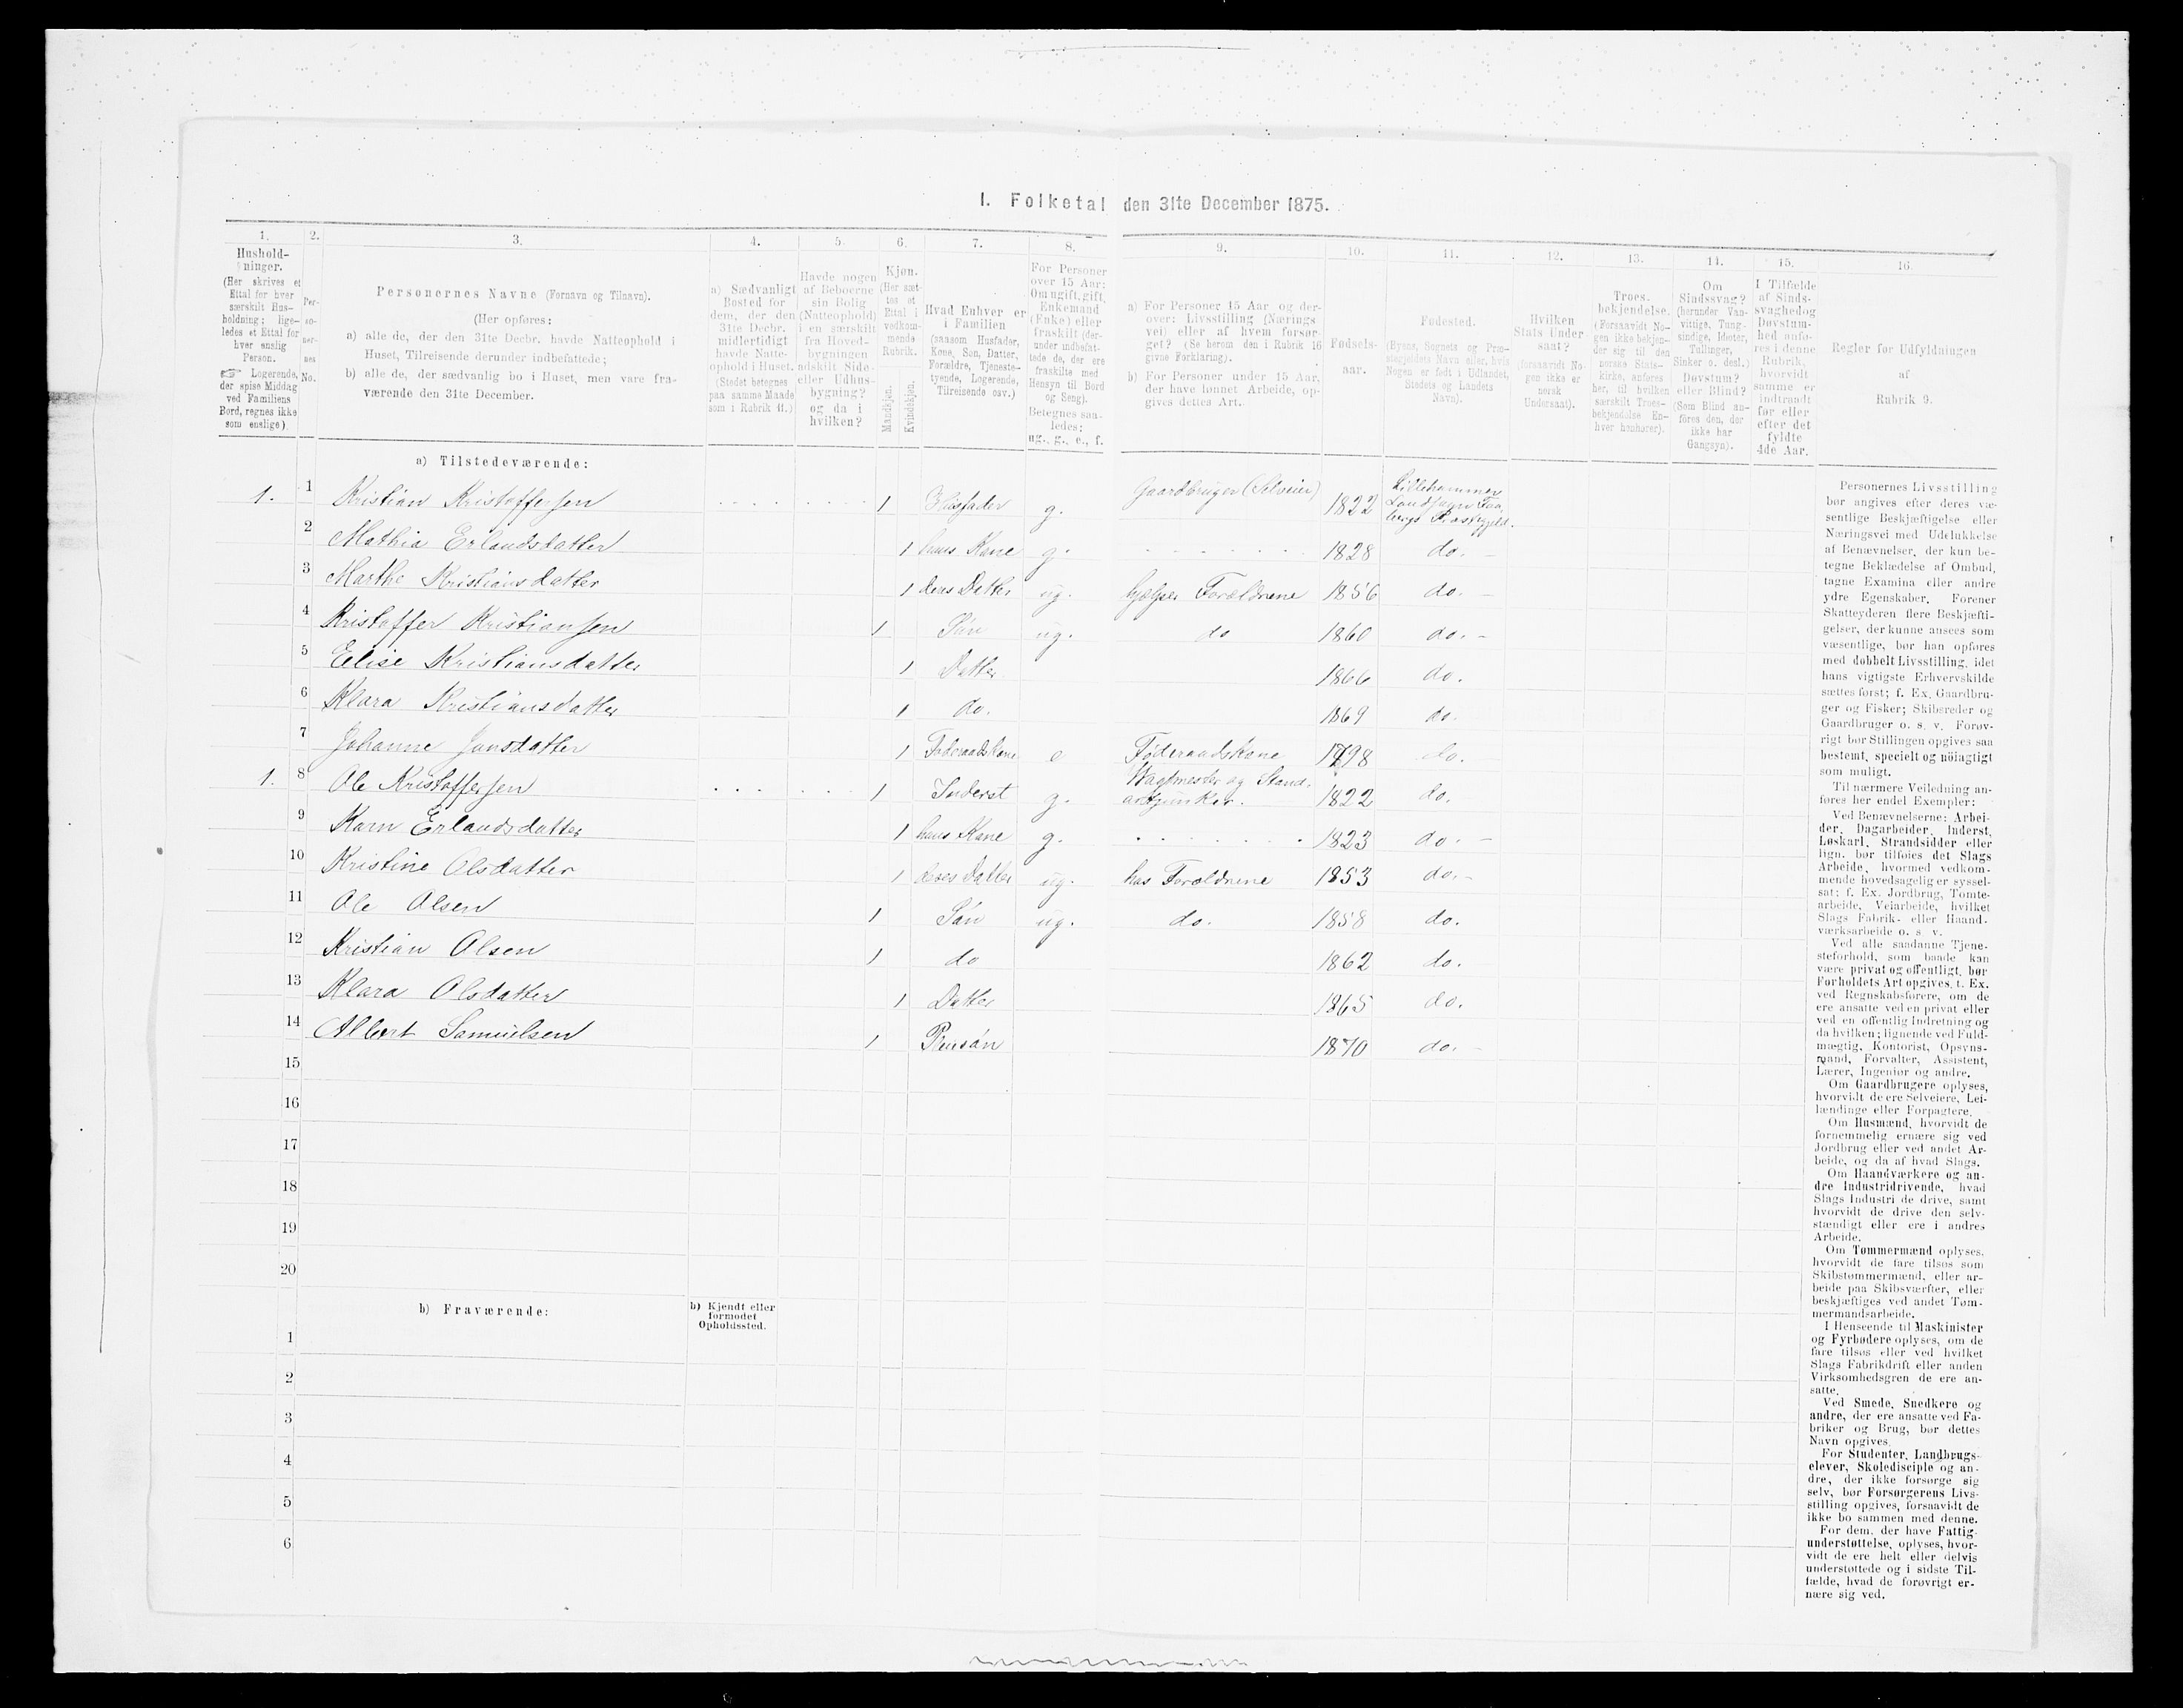 I. Folketal den 31te December 1875.
1.
Hushold-
ninger.
(Her skrives et
Ettal for hver
særskilt Hus-
holdning; lige-
ledes et Ettal for
hver enslig
Person.
☞ Logerende,
der spise Middag
ved Familiens
Bord, regnes ikke
som enslige)
2.
Per-
so-
ner-
nes
No.
3.
Personernes Navne (Fornavn og Tilnavn).
(Her opføres:
a) alle de, der den 31te Decbr. havde Natteophold i
Huset, Tilreisende derunder indbefattede;
b) alle de, der sædvanlig bo i Huset, men vare fra-
værende den 31te December.
4.
a) Sædvanligt
Bosted for
dem, der den
31te Decbr.
midlertidigt
havde Natte-
ophold i Huset.
(Stedet betegnes
paa samme Maade
som i Rubrik 11.)
5.
Havde nogen
af Beboerne
sin Bolig
(Natteophold)
i en særskilt
fra Hoved-
bygningen
adskilt Side-
eller Udhus-
bygning?
og da i
hvilken?
6.
Kjøn.
(Her sæt-
tes et
Ettal i
vedkom-
mende
Rubrik.
Mandkjøn.
Kvindekjøn.
7.
Hvad Enhver er
i Familien
(saasom Husfader,
Kone, Søn, Datter,
Forældre, Tjeneste-
tyende, Logerende,
Tilreisende osv.)
8.
For Personer
over 15 Aar:
Om ugift, gift,
Enkemand
(Enke) eller
fraskilt (der-
under indbefat-
tede de, der ere
fraskilte med
Hensyn til Bord
og Seng).
Betegnes saa-
ledes:
ug., g., e., f.
9.
a) For Personer 15 Aar og der-
over: Livsstilling (Nærings
vei) eller af hvem forsør-
get? (Se herom den i Rubrik 16
givne Forklaring).
b) For Personer under 15 Aar,
der have lønnet Arbeide, op-
gives dettes Art.
10.
Fødsels-
aar.
11.
Fødested.
(Byens, Sognets og Præ-
stegjeldets Navn eller, hvis
Nogen er født i Udlandet,
Stedets og Landets
Navn).
12.
Hvilken
Stats Under
saat?
(forsaavidt No-
gen ikke er
norsk
Undersaat).
13.
Troes-
bekjendelse.
(Forsaavidt No-
gen ikke bekjen-
der sig til den
norske Stats-
kirke, anføres
her, til hvilken
særskilt Troes-
bekjendelse En-
hver henhører).
14.
Om
Sindssvag?
(herunder Van-
vittige, Tung-
sindige, Idioter,
Tullinger,
Sinker o. desl.)
Døvstum?
eller Blind?
(Som Blind an-
føres den, der
ikke har
Gangsyn).
15.
I Tilfælde
af Sinds-
svaghed og
Døvstum-
hed anfø-
res i denne
Rubrik,
hvorvidt
samme er
indtraadt
før eller
efter det
fyldte
4de Aar.
16.
Regler for Udfyldningen
af
Rubrik 9.
a) Tilstedeværende:
1. 1 Kristian Kristoffersen 1 Husfader g. Gaardbruger (Selveier) 1822 Lillehammer Landsogn Faabergs Præstegjeld.
2 Mathia Erlandsdatter 1 hans Kone g. 1828 do.
3 Marthe Kristiansdatter 1 deres Datter ug. hjælper Forældrene 1856 do.
4 Kristoffer Kristiansen 1 Søn ug. do 1860 do.
5 Elise Kristiansdatter 1 Datter 1866 do.
6 Klara Kristiansdatter 1 do. 1869 do.
7 Johanne Jonsdatter 1 Føderaadskone e Føderaadskone 1798 do.
1. 8 Ole Kristoffersen 1 Inderst g. Vagtmester og Standartjunker. 1822 do.
9 Karn Erlandsdatter 1 hans Kone g. 1823 do.
10 Kristine Olsdatter 1 deres Datter ug. hos Forældrene 1853 do.
11 Ole Olsen 1 Søn ug. do. 1858 do.
12 Kristian Olsen 1 do 1862 do.
13 Klara Olsdatter 1 Datter 1865 do.
14 Albert Samuelsen 1 Pleiesøn 1870 do.
15
16
17
18
19
20
b) Fraværende:
b) Kjendt eller
formodet
Opholdssted.
1
2
3
4
5
6
Personernes Livsstilling
bør angives efter deres væ-
sentlige Beskjæftigelse eller
Næringsvei med Udelukkelse
af Benævnelser, der kun be-
tegne Beklædelse af Ombud,
tagne Examina eller andre
ydre Egenskaber. Forener
Skatteyderen flere Beskjæfti-
gelser, der kunne ansees som
væsentlige, bør han opføres
med dobbelt Livsstilling, idet
hans vigtigste Erhvervskilde
sættes først; f. Ex. Gaardbru-
ger og Fisker; Skibsreder og
Gaardbruger o. s. v. Forøv-
rigt bør Stillingen opgives saa
bestemt, specielt og nöiagtigt
som muligt.
Til nærmere Veiledning an-
føres her endel Exempler:
Ved Benævnelserne: Arbei-
der, Dagarbeider, Inderst,
Løskarl, Strandsidder eller
lign. bør tilføies det Slags
Arbeide, hvormed vedkom-
mende hovedsagelig er syssel-
sat; f. Ex. Jordbrug, Tomte-
arbeide, Veiarbeide, hvilket
Slags Fabrik- eller Haand-
værksarbeide o. s. v.
Ved alle saadanne Tjene-
steforhold, som baade kan
være privat og offentligt, bør
Forholdets Art opgives, t. Ex.
ved Regnskabsførere, om de
ere ansatte ved en privat eller
ved en offentlig Indretning og
da hvilken; lignende ved Fuld-
mægtig, Kontorist, Opsyns-
mand, Forvalter, Assistent,
Lærer, Ingeniør og andre.
Om Gaardbrugere oplyses,
hvorvidt de ere Selveiere, Lei-
lændinge eller Forpagtere.
Om Husmænd, hvorvidt de
fornemmelig ernære sig ved
Jordbrug eller ved andet Ar-
beide, og da af hvad Slags.
Om Haandværkere og an-
dre Industridrivende, hvad
Slags Industri de drive, samt
hvorvidt de drive den selv-
stændigt eller ere i andres
Arbeide.
Om Tømmermænd oplyses,
hvorvidt de fare tilsøs som
Skibstømmermænd, eller ar-
beide paa Skibsværfter, eller
beskjæftiges ved andet Tøm-
mermandsarbeide.
I Henseende til Maskinister
og Fyrbødere oplyses, om de
fare tilsøs eller ved hvilket
Slags Fabrikdrift eller anden
Virksomhedsgren de ere an-
satte.
Ved Smede, Snedkere og
andre, der ere ansatte ved Fa-
briker og Brug, bør dettes
Navn opgives.
For Studenter, Landbrugs-
elever, Skoledisciple og an-
dre, der ikke forsørge sig
selv, bør Forsørgerens Livs-
stilling opgives, forsaavidt de
ikke bo sammen med denne.
For dem, der have Fattig-
understøttelse, oplyses, hvor-
vidt de ere helt eller delvis
understøttede og i sidste Til-
fælde, hvad de forøvrigt er-
nære sig ved.